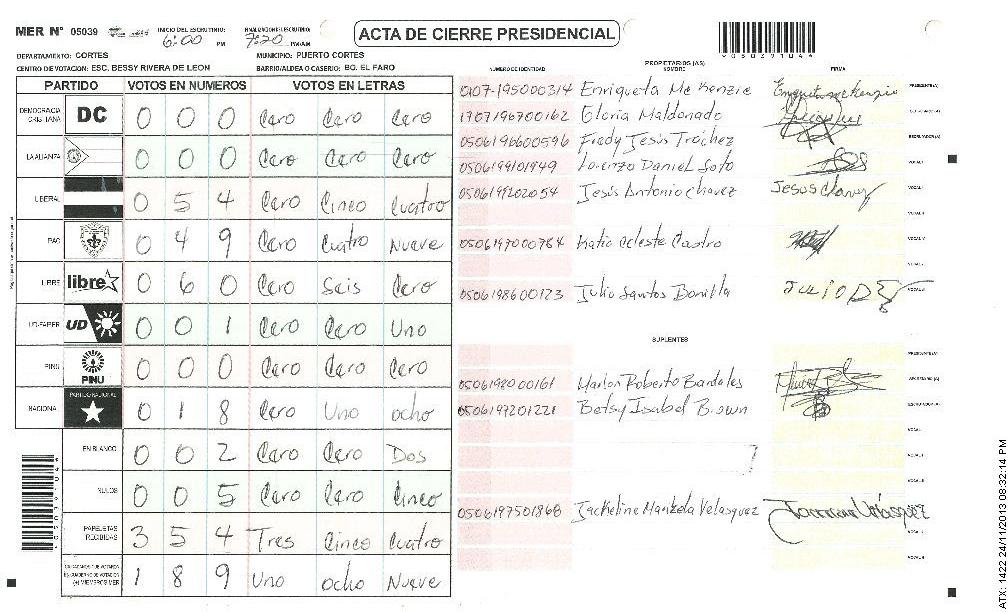 MER Nº 05039 INICIO DEL ESCRUTINIO: 6:00 PM FINALIZACION DEL ESCRUTINIO: 7:20 PM/AM ACTA DE CIERRE PRESIDENCIAL
DEPARTAMENTO: CORTES MUNICIPIO: PUERTO CORTES
CENTRO DE VOTACION: ESC. BESSY RIVERA DE LEON BARRIO/ALDEA O CASERIO: BO. EL FARO
PARTIDO VOTOS EN NUMEROS VOTOS EN LETRAS
DEMOCRACIA CRISTIANA DC 0 0 0 Cero Cero Cero
LA ALIANZA 0 0 0 Cero Cero Cero
LIBERAL 0 5 4 Cero Cinco Cuatro
PAC 0 4 9 Cero Cuatro Nueve
LIBRE libre 0 6 0 Cero Seis Cero
UD-FAPER UD 0 0 1 Cero Cero Uno
PINU PINU 0 0 0 Cero Cero Cero
NACIONAL PARTIDO NACIONAL 0 1 8 Cero Uno ocho
EN BLANCO 0 0 2 Cero Cero Dos
NULOS 0 0 5 Cero Cero Cinco
PAPELETAS RECIBIDAS 3 5 4 Tres Cinco Cuatro
(+) MIEMBROS MER 1 8 9 Uno ocho Nueve
PROPIETARIOS (AS)
NUMERO DE IDENTIDAD NOMBRE FIRMA
0107-195000314 Enriqueta Mc Kenzie PRESIDENTE(A)
1707196700162 Gloria Maldonado
0506196600596 Fredy Jesús Trochez
0506199101949 Lorenzo Daniel Soto
0506199202054 Jesús Antonio Chavez Jesus Chavez
0506197000784 Katia Celeste Castro
0506198600123 Julio Santos Bonilla
SUPLENTES
PRESIDENTE(A)
0506192000161 Marlon Roberto Bardales SECRETARIO (A)
0506197201221 Betsy Isabel Brown
0506197501868 Jackeline Manzola Velasquez
ATX: 1422 24/11/2013 08:32:14 PM